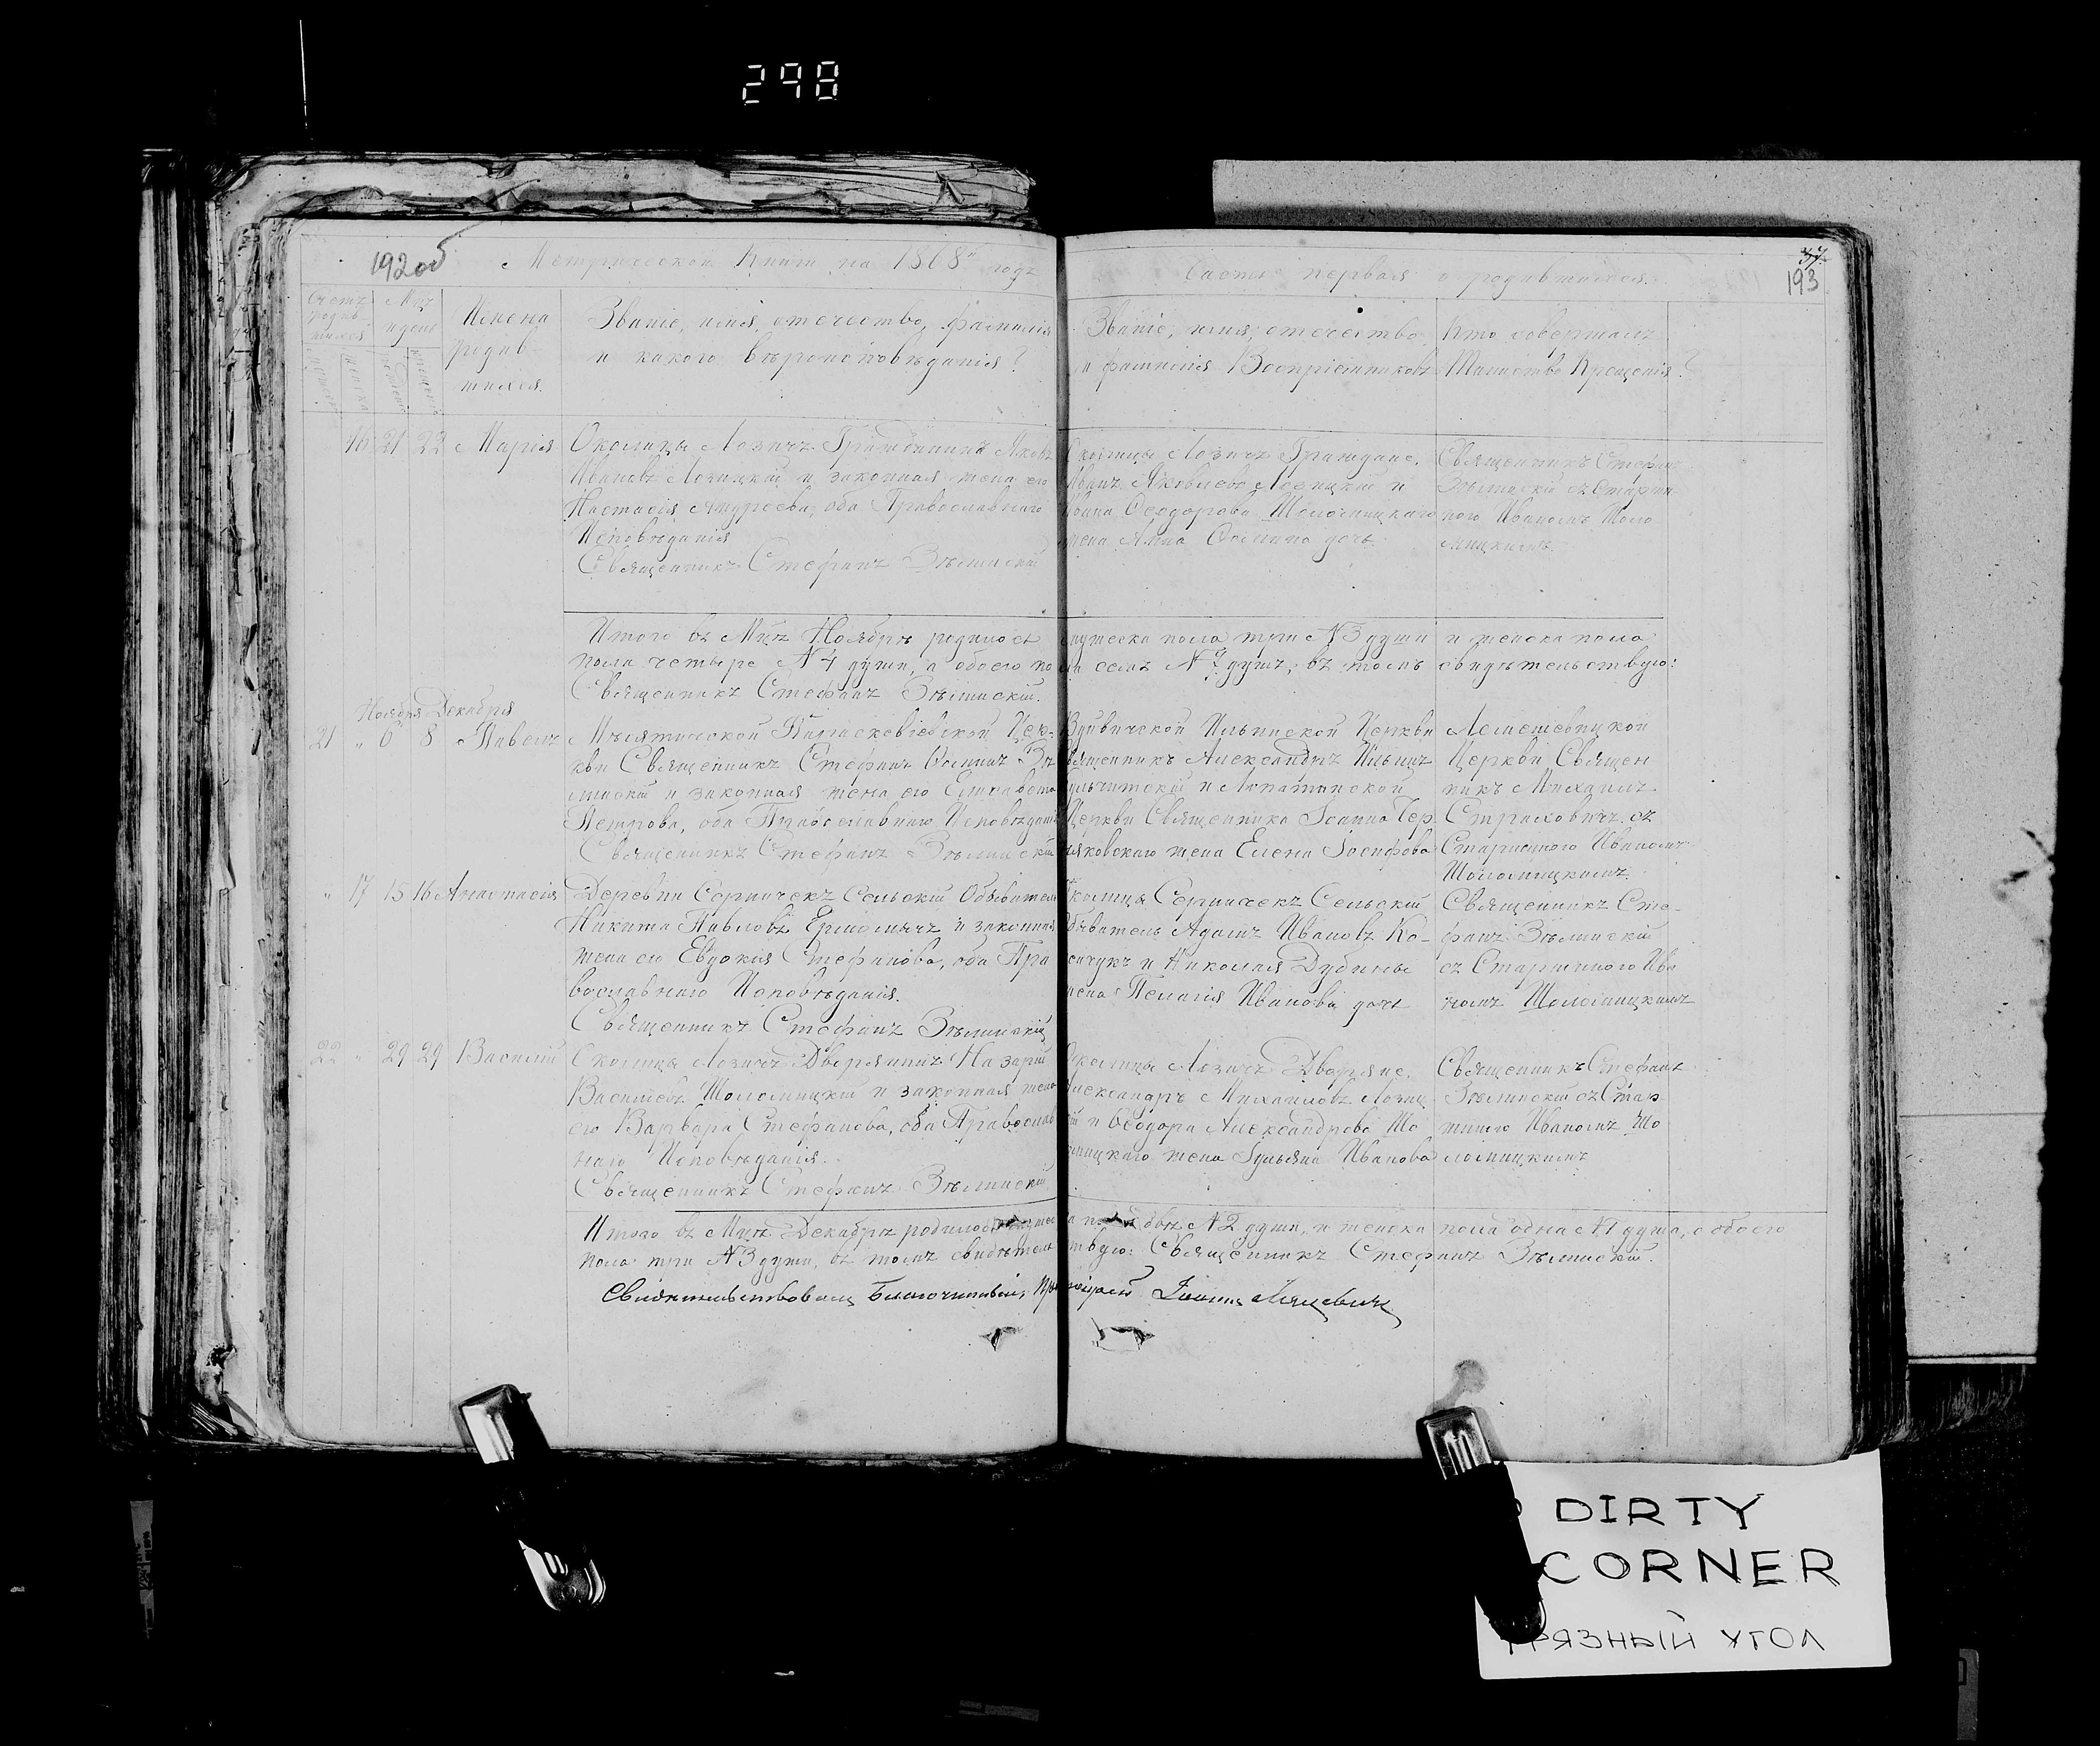 298
192об
Метрической Книги на 1868й годъ
Счетъ родив-шихся
Мцъ и день
Имена родив-шихся.
Званіе, имя, отечество, фамилія
и какого вѣроисповѣданія?
37.
193
Часть первая о родившихся.
Званіе, имя, отечество
и фамилія Воспріемниковъ
Кто совершалъ
Таинство Крещенія?
16 21 22 Марія
Околицы Лозичъ Гражданинъ Яковъ
Ивановъ Лозицкій и законная жена его
Настасія Андреева, оба Православнаго
Исповѣданія
Священникъ Стефанъ Зѣлинскій
Околицы Лозичъ Граждане,
Иванъ Яковлевъ Лозицкій и
Ѳеодорова Шоломицкаго
жена Анна Осипова дочь.
Священникъ Стефанъ
Зѣлинскій съ Старши
ного Иваномъ Шоло
мицкимъ.
Итого въ Мцѣ Ноябрѣ родилось мужеска пола три №3 души и женска пола
пола четыре №4 души, а обоего пола семь №7 душъ; въ томъ свидѣтельствую:
Священникъ Стефанъ Зѣлинскій.
Ноября Декабря
21 " 6 8 Павелъ
Мѣсятической Параскевіевской Цер-
кви Священникъ Стефанъ Зѣ
линскій и законная жена его Елисавета
Петрова, оба Православнаго Исповѣданія
Священникъ Стефанъ Зѣлинскій
Вуйвичской Ильинской Церкви
Священникъ Александръ Ильинъ
и Лопатинской
Церкви Священника Іоанна Чер
няковскаго жена Елена Іосифова
Лемешевицкой
Церкви Священ
никъ Михаилъ
Страховичъ съ
Старшиного Иваномъ
Шоломицкимъ.
" 17 15 16 Анастасія
Деревни Серничекъ Сельскій Обыватель
Никита Павловъ Ермоличъ и законная
жена его Евдокія Стефанова, оба Пра
вославнаго Исповѣданія.
Священникъ Стефанъ Зѣлинскій
Околицы Серничекъ Сельскій
Обыватель Адамъ Ивановъ Ко-
и Николая Дубины
жена Пелагія Иванова дочь
Священникъ Сте-
фанъ Зѣлинскій
съ Старшиного Ива
номъ Шоломицкимъ
22 " 29 29 Василій
Околицы Лозичъ Дворянинъ Назарій
Васильевъ Шоломицкій и законная жена
его Варвара Стефанова, оба Православ
наго Исповѣданія.
Священникъ Стефанъ Зѣлинскій
Околицы Лозичъ Дворяне,
Александръ Михаиловъ Лозиц
кій и Ѳеодора Александрова Шо
ломицкаго жена Іульяна Иванова
Священникъ Стефанъ
Зѣлинскій съ Стар
шиного Иваномъ Шо
ломицкимъ
Итого въ Мцѣ Декабрѣ родилось мужеска пола двѣ №2 души, и женска пола одна №1 душа, а обоего
пола три №3 души, въ томъ свидѣтельствую: Священникъ Стефанъ Зѣлинскій.
Свидѣтельствовалъ Благочинный, Протоіерей Іоаннъ
DIRTY
CORNER
ГРЯЗНЫЙ УГОЛ